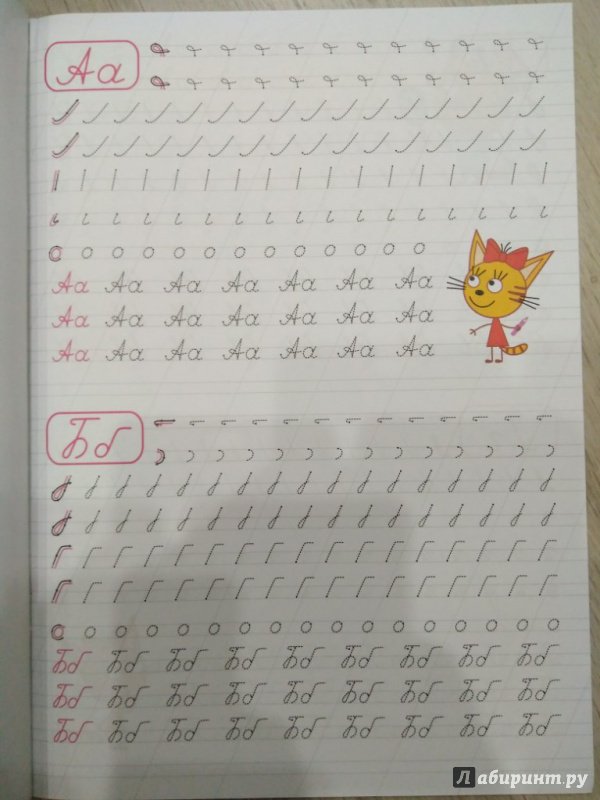 Аа
Аа Аа Аа Аа Аа Аа Аа
Аа Аа Аа Аа Аа Аа Аа
Аа Аа Аа Аа Аа Аа Аа
Бб
Бб Бб Бб Бб Бб Бб Бб Бб Бб
Бб Бб Бб Бб Бб Бб Бб Бб Бб
Бб Бб Бб Бб Бб Бб Бб Бб Бб
Лабиринт.ру